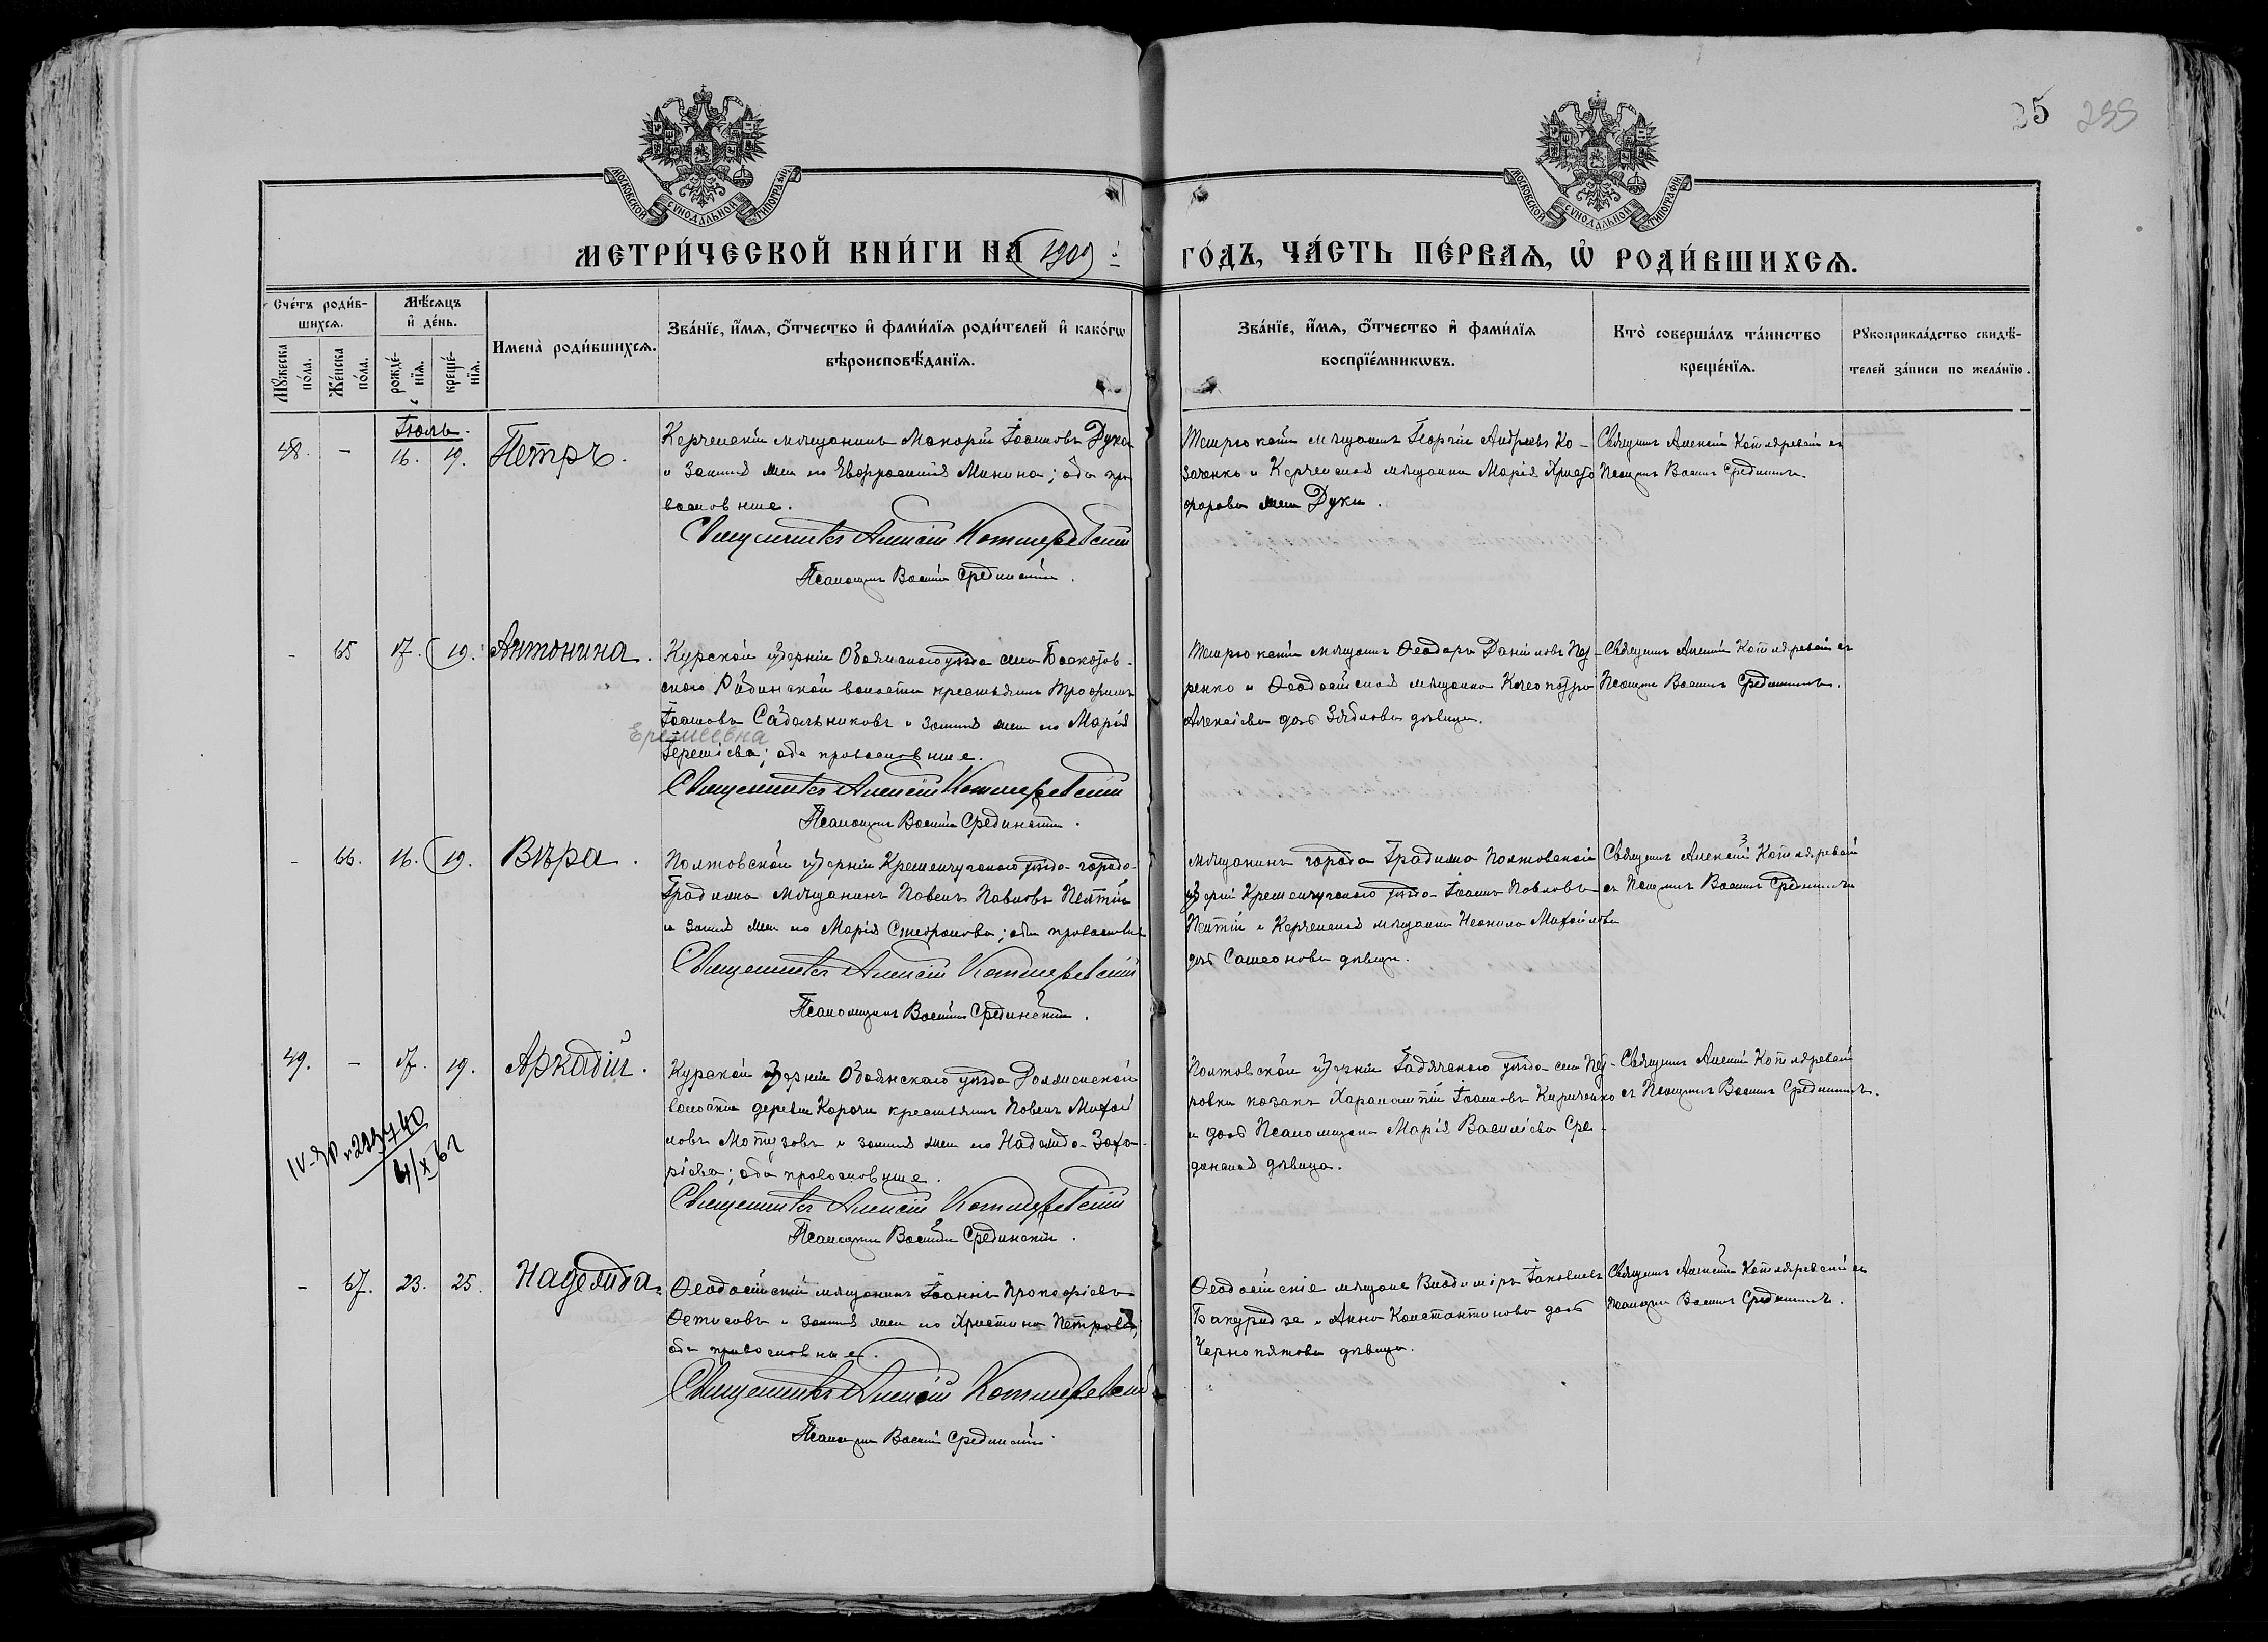 МОСКОВСКОЙ СѴНОДАЛЬНОЙ ТИПОГРАФІИ
МОСКОВСКОЙ СѴНОДАЛЬНОЙ ТИПОГРАФІИ
МЕТРИ́ЧЕСКОЙ КНИ́ГИ НА 1909
ГО́ДЪ, ЧА́СТЬ ПЕ́РВАѦ, Ѿ РОДИ́ВШИХСѦ.
Сче́тъ роди́в-
шихсѧ.
Мꙋжеска по́ла.
Же́нска по́ла.
Мѣ́сѧцъ
и҆ де́нь.
рожде́-
нїѧ.
креще́-
нїѧ.
Имена̀ роди́вшихсѧ.
Зва́нїе, и҆́мѧ, ѻ҆́тчество и҆ фами́лїѧ роди́телей и҆ како́гѡ
вѣроисповѣ́данїѧ.
Зва́нїе, и҆́мѧ, ѻ҆́тчество и҆ фами́лїѧ
воспрїе́мникѡвъ.
Кто̀ соверша́лъ та́инство
креще́нїѧ.
Рꙋкоприкла́дство свидѣ́-
телей за́писи по жела́нїю.
Іюль.
48. - 16. 19. Петръ.
Керченскій мѣщанинъ Макарій Іоанновъ Дука
и законная жена его Евфросинія Минина; оба пра
вославные.
Священникъ Алексій Котляревскій
Псаломщикъ Василій Срединскій.
Темрюкскій мѣщанинъ Георгій Андреевъ Ко-
заченко и Керченская мѣщанка Марія Христо
форова жена Дука.
Священникъ Алексій Котляревскій съ
Псаломщ. Василіемъ Срединскимъ
- 65 17. 19. Антонина.
Курской губерніи Обоянскаго уѣзда села
волости крестьянинъ Трофимъ
Іоанновъ Сабельниковъ и законная жена его Марія
Еремеевна
Іереміева; оба православные.
Священникъ Алексій Котляревскій
Псаломщикъ Василій Срединскій.
Темрюкскій мѣщанинъ Ѳеодоръ Даніиловъ
ренко и Ѳеодосійская мѣщанка Клеопатра
Алексіева дочь дѣвица.
Священникъ Алексій Котляревскій съ
Псаломщ. Василіемъ Срединскимъ.
- 66. 16. 19. Вѣра.
Полтавской губерніи Кременчугскаго уѣзда города
Градижска мѣщанинъ Павелъ Павловъ
и законная жена его Марія Стефанова; оба православные
Священникъ Алексій Котляревскій
Псаломщикъ Василій Срединскій.
Мѣщанинъ города Градижска Полтавской
губерніи Кременчугскаго уѣзда Іоаннъ Павловъ
и Керченская мѣщанка Неонила Михайлова
дочь дѣвица.
Священникъ Алексій Котляревскій
съ Псаломщ. Василіемъ Срединскимъ
49. - 17. 19. Аркадій.
Курской губерніи Обоянскаго уѣзда
волости деревни Карочи крестьянинъ Павелъ Михаи
ловъ Мотузовъ и законная жена его Надежда Заха-
ріева; оба православные.
Священникъ Алексій Котляревскій
Псаломщикъ Василій Срединскій.
Полтавской губерніи Гадячскаго уѣзда села Пет-
ровки козакъ Харалампій Іоанновъ Кириченко
и дочь Псаломщика Марія Василіева Сре-
динская дѣвица.
Священникъ Алексій Котляревскій
съ Псаломщ. Василіемъ Срединскимъ.
- 67. 23. 25. Надежда.
Ѳеодосійскій мѣщанинъ Іоаннъ Прокофіевъ
Ѳетисовъ и законная жена его Христина Петрова;
оба православные.
Священникъ Алексій Котляревскій
Псаломщикъ Василій Срединскій.
Ѳеодосійскіе мѣщане Владиміръ Іаковлевъ
Бакуридзе и Анна Константинова дочь
Чернопятова дѣвица.
Священникъ Алексій Котляревскій съ
Псаломщ. Василіемъ Срединскимъ.